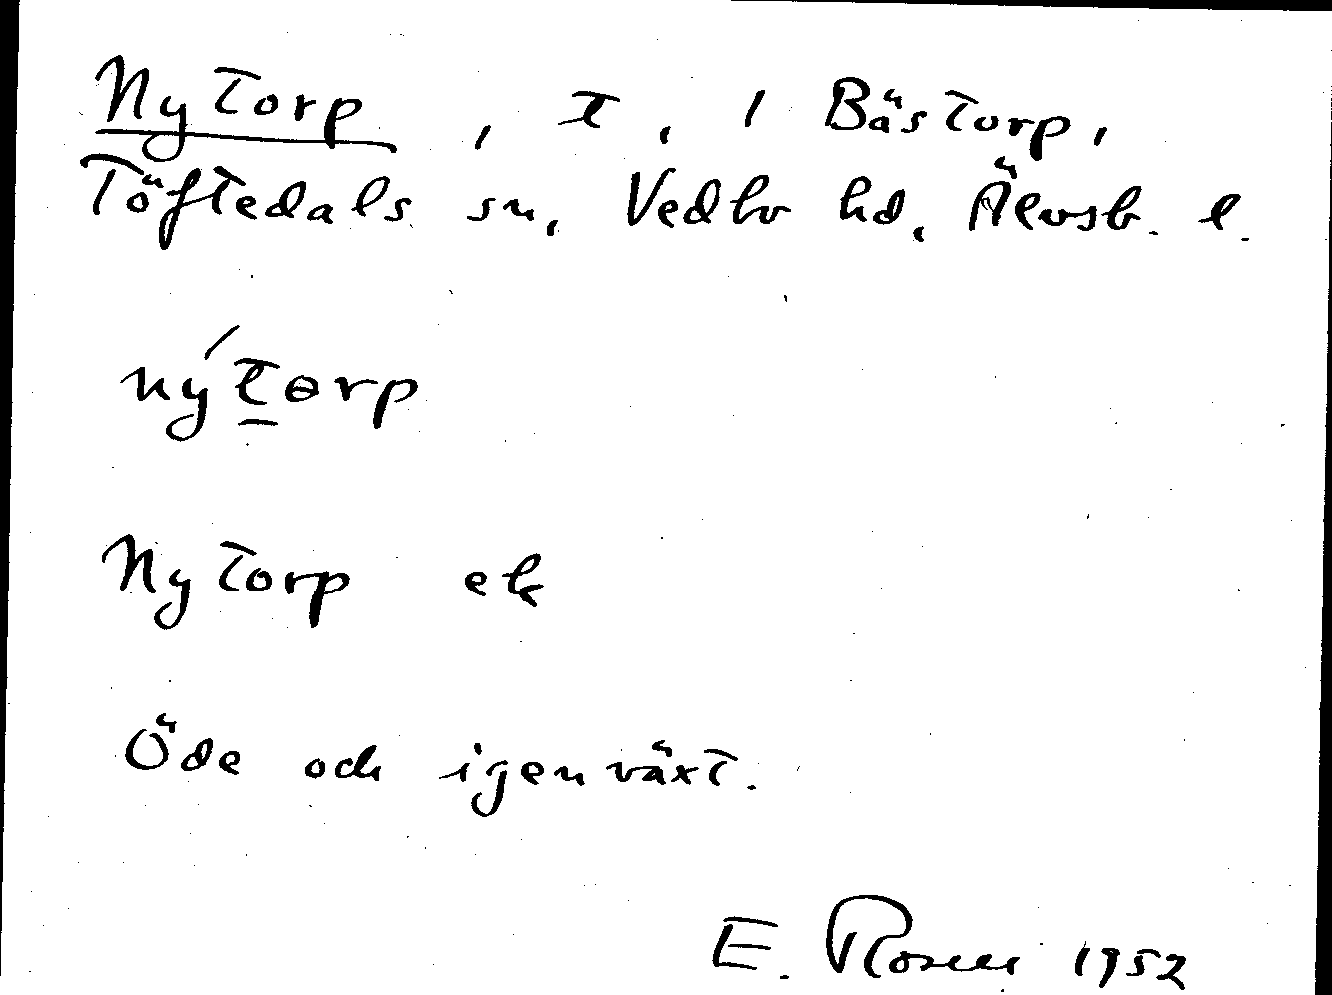 Nytorp, t, 1 Bästorp,
Töftedals sn, Vedbo hd, Älvsb. l.
nýtorp
Nytorp ek
Öde och igenväxt.
E. Rosell 1952